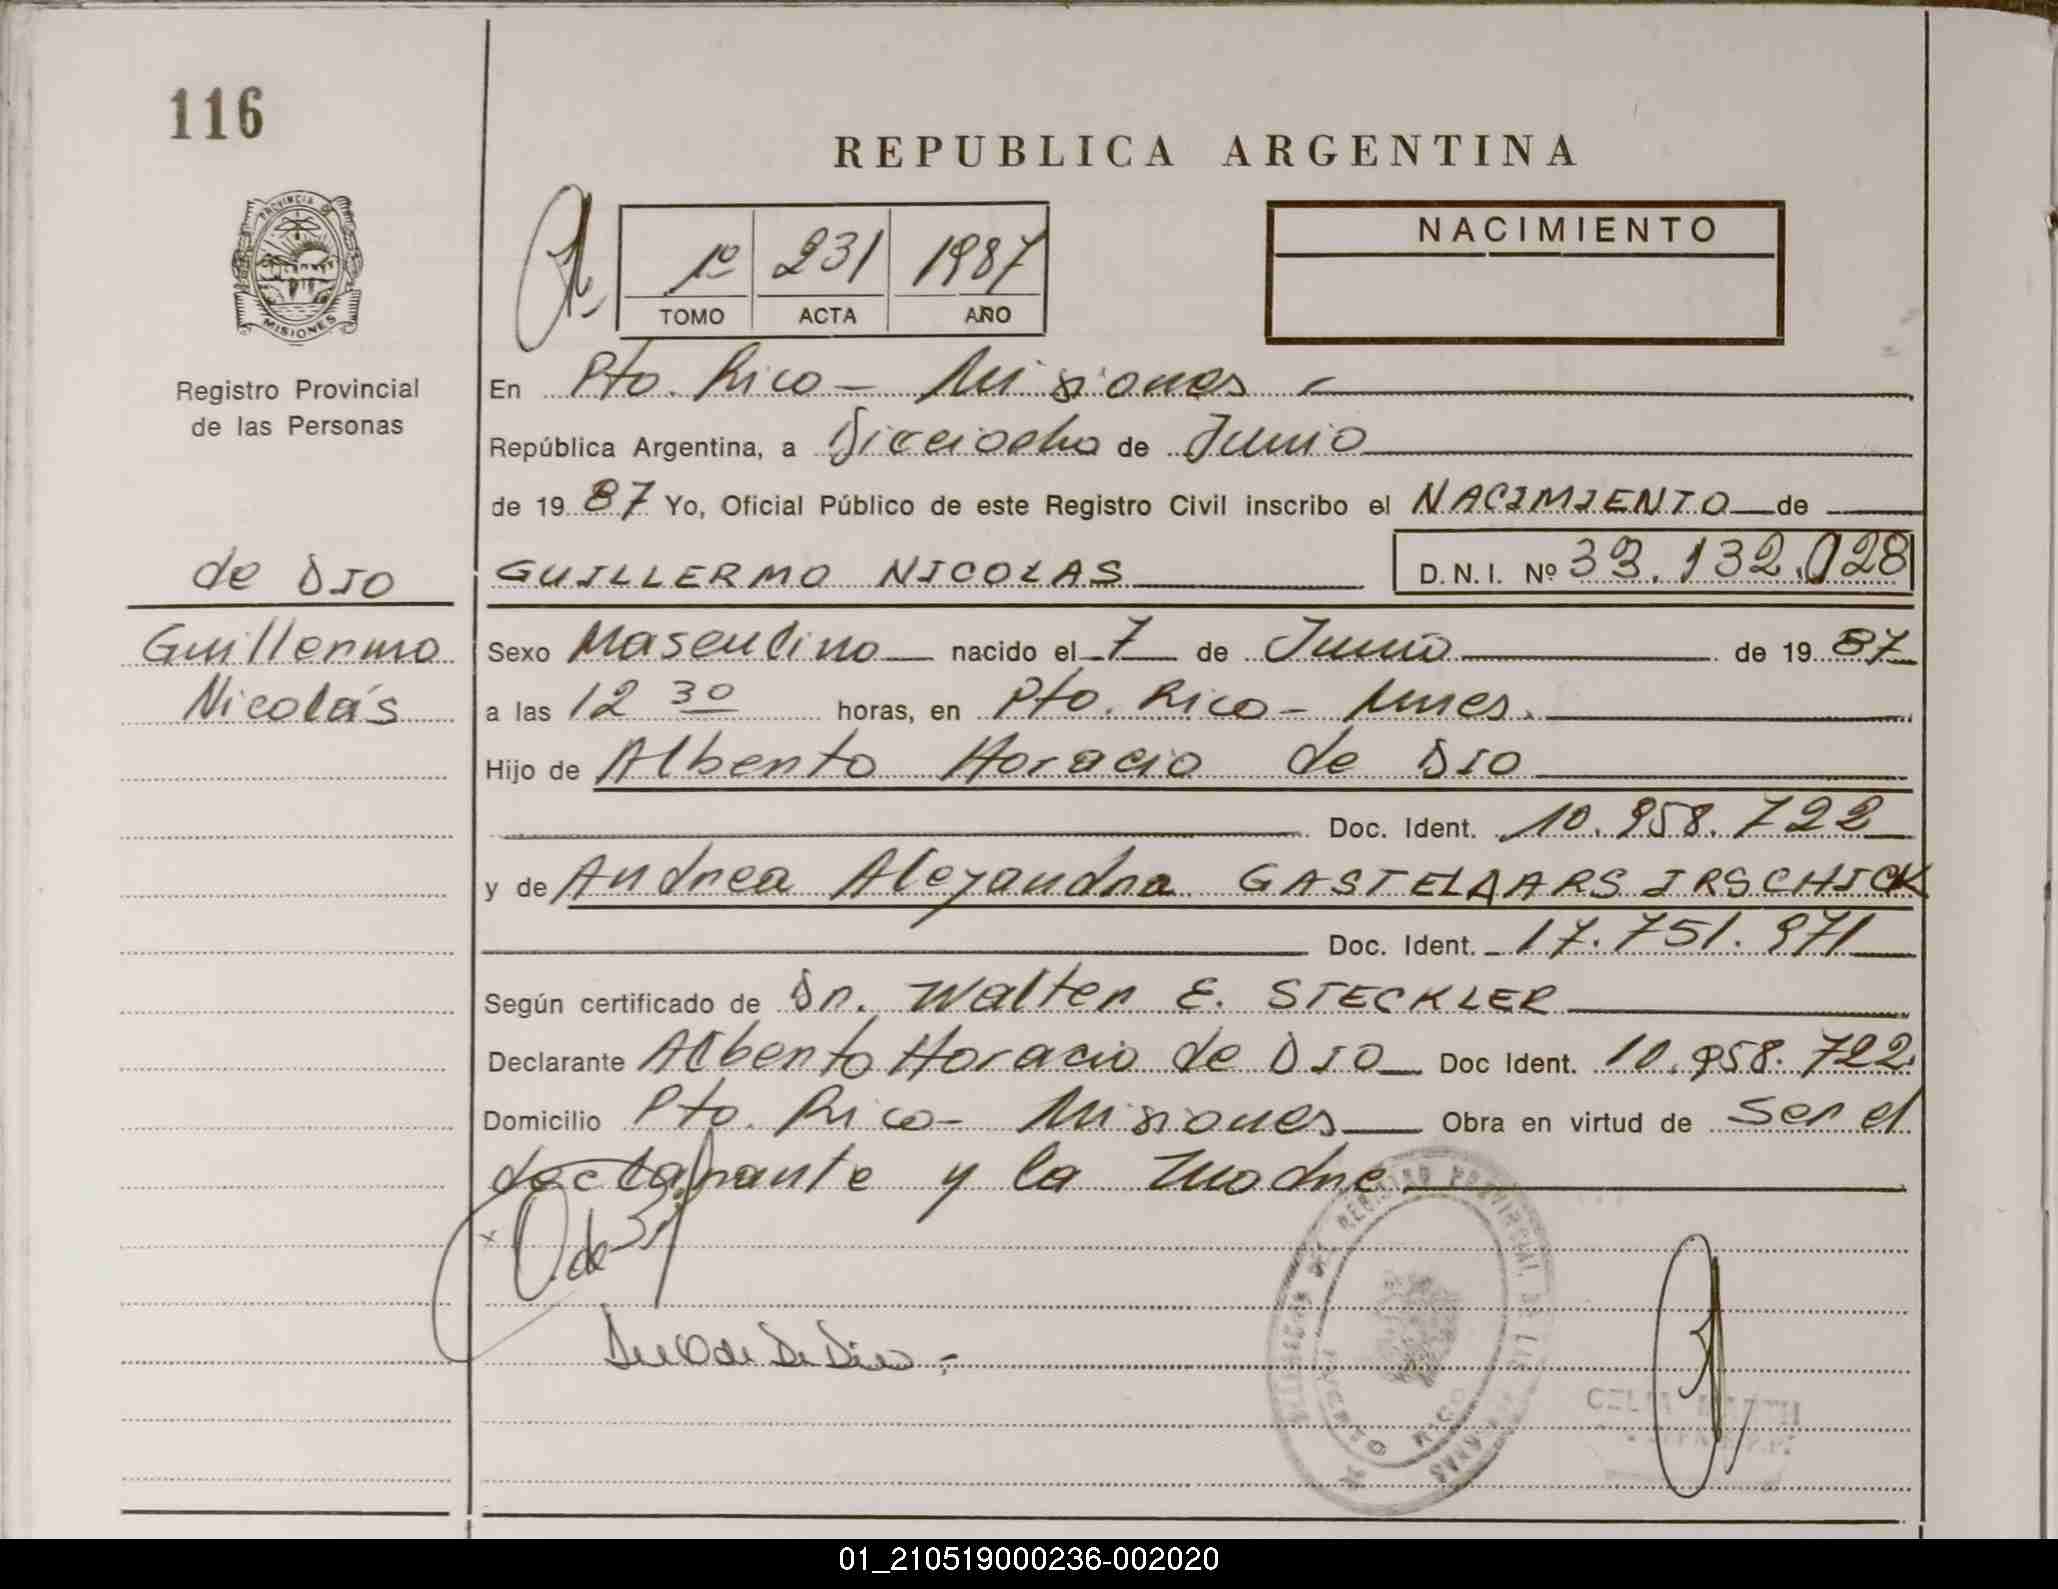 116
REPUBLICA ARGENTINA
1º 231 1987
TOMO ACTA AÑO
NACIMIENTO
PROVINCIA DE
MISIONES
Registro Provincial
de las Personas
En Pto. Rico - Misiones
República Argentina, a Dieciocho de Junio
de 19 87 Yo, Oficial Público de este Registro Civil inscribo el NACIMIENTO de
de DIO
GUILLERMO NICOLAS D.N.I. Nº 33.132.028
Guillermo
Nicolás
Sexo Masculino nacido el 7 de Junio de 19 87
a las 12 30 horas, en Pto. Rico - Mnes.
Hijo de Alberto Horacio de DIO
Doc. Ident. 10.958.722
y de Andrea Alejandra GASTELAARS IRSCHICK
Doc. Ident. 17.751.971
Según certificado de Dr. Walter E. STECKLER
Declarante Alberto Horacio de DIO Doc Ident. 10.958.722
Domicilio Pto. Rico - Misiones Obra en virtud de ser el
declarante y la madre
DEL REGISTRO PROVINCIAL DE LAS PERSONAS
PUERTO RICO
01_210519000236-002020